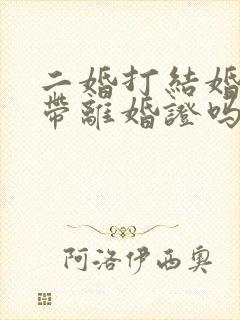 二婚打結婚
帶離婚證嗎
阿洛伊西奧